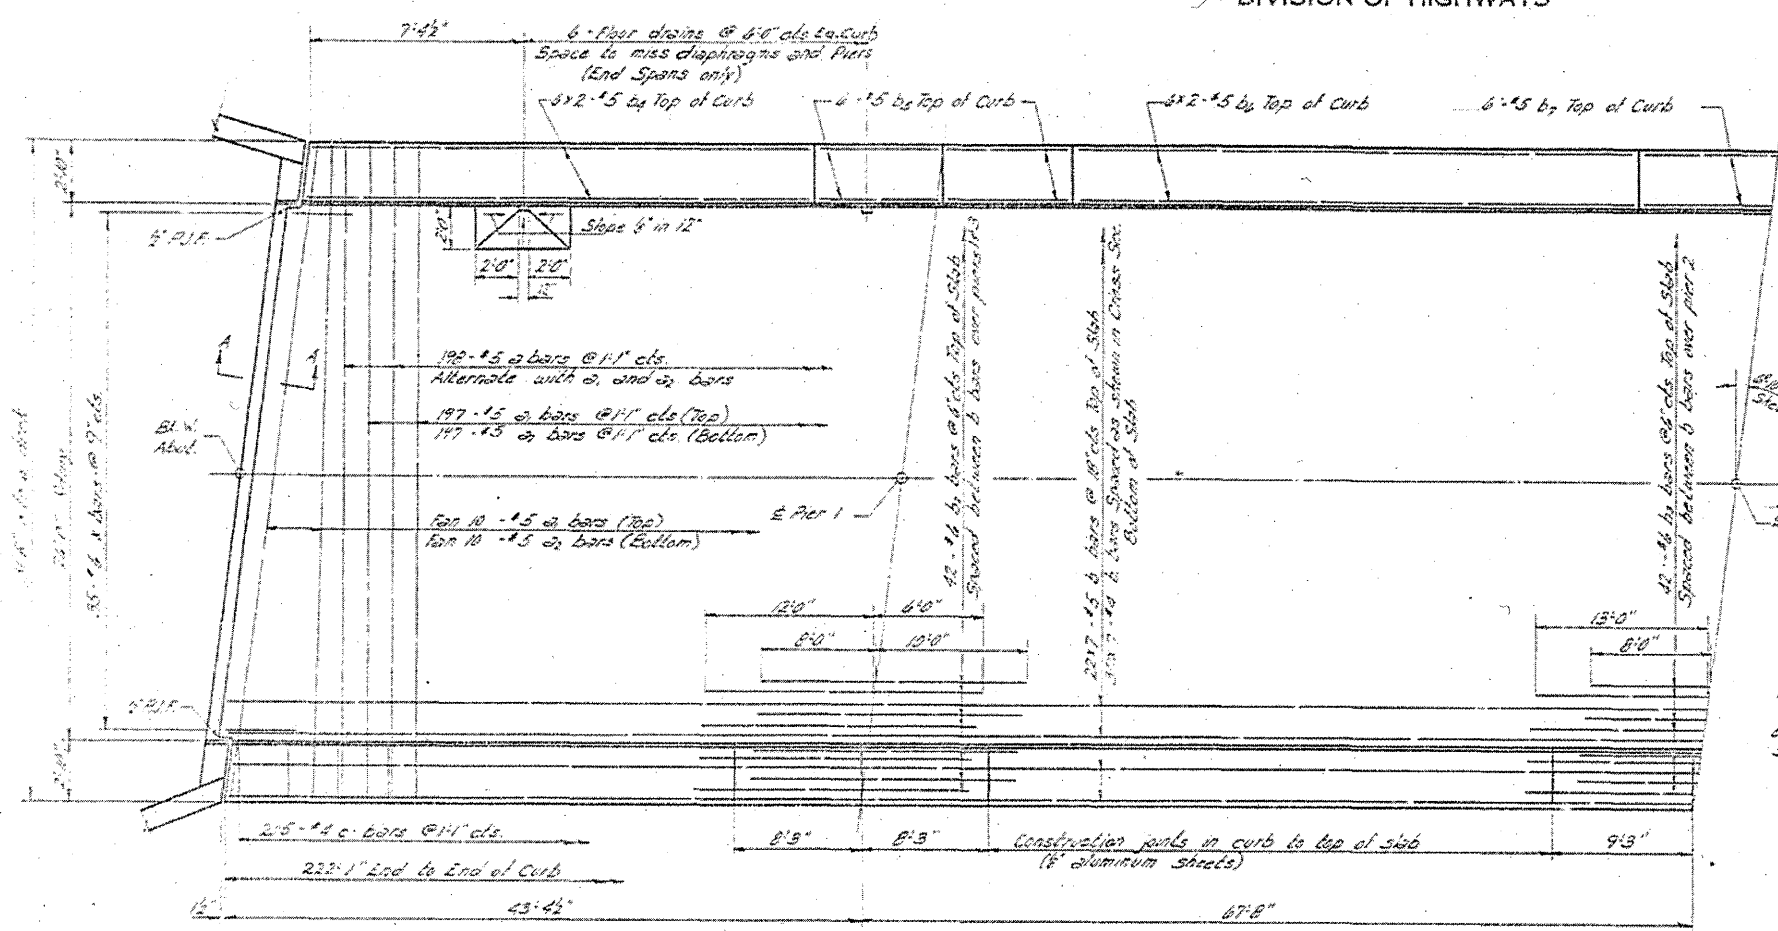 DIVISION OF HIGHWAYS
7'-4½"
6 - Floor drains @ 6'-0" cts. Ea. Curb
Space to miss diaphragms and Piers
(End Spans only)
6x2-#5 b4 Top of Curb
6-#5 b5 Top of Curb
6x2-#5 b6 Top of Curb
6-#5 b7 Top of Curb
2'-10"
½" P.J.F.
2'-0"
Slope 6" in 12"
2'-0"
2'-0"
A
A
198-#5 a bars @ 1'-1" cts.
Alternate with a1 and a2 bars
197-#5 a1 bars @ 1'-1" cts. (Top)
197-#5 a2 bars @ 1'-1" cts. (Bottom)
Bk. W.
Abut.
35-#6 x bars @ 9" cts.
Fan 10 -#5 a1 bars (Top)
Fan 10 -#5 a2 bars (Bottom)
℄ Pier 1
42-#6 b2 bars @ 6" cts. Top of Slab
Spaced between b bars over piers 1&3
22x7-#5 b bars @ 18" cts. Top of Slab
b1 bars Spaced as shown in Cross Sec.
Bottom of Slab
42-#6 b3 bars @ 6" cts. Top of Slab
Spaced between b bars over pier 2
12'-0"
6'-0"
8'-0"
10'-0"
13'-0"
8'-0"
½" P.J.F.
2'-10"
215-#4 c bars @ 1'-1" cts.
222'-1" End to End of Curb
8'-3"
8'-3"
Construction joints in curb to top of slab
(⅛" aluminum sheets)
9'-3"
1½"
43'-4½"
67'-8"